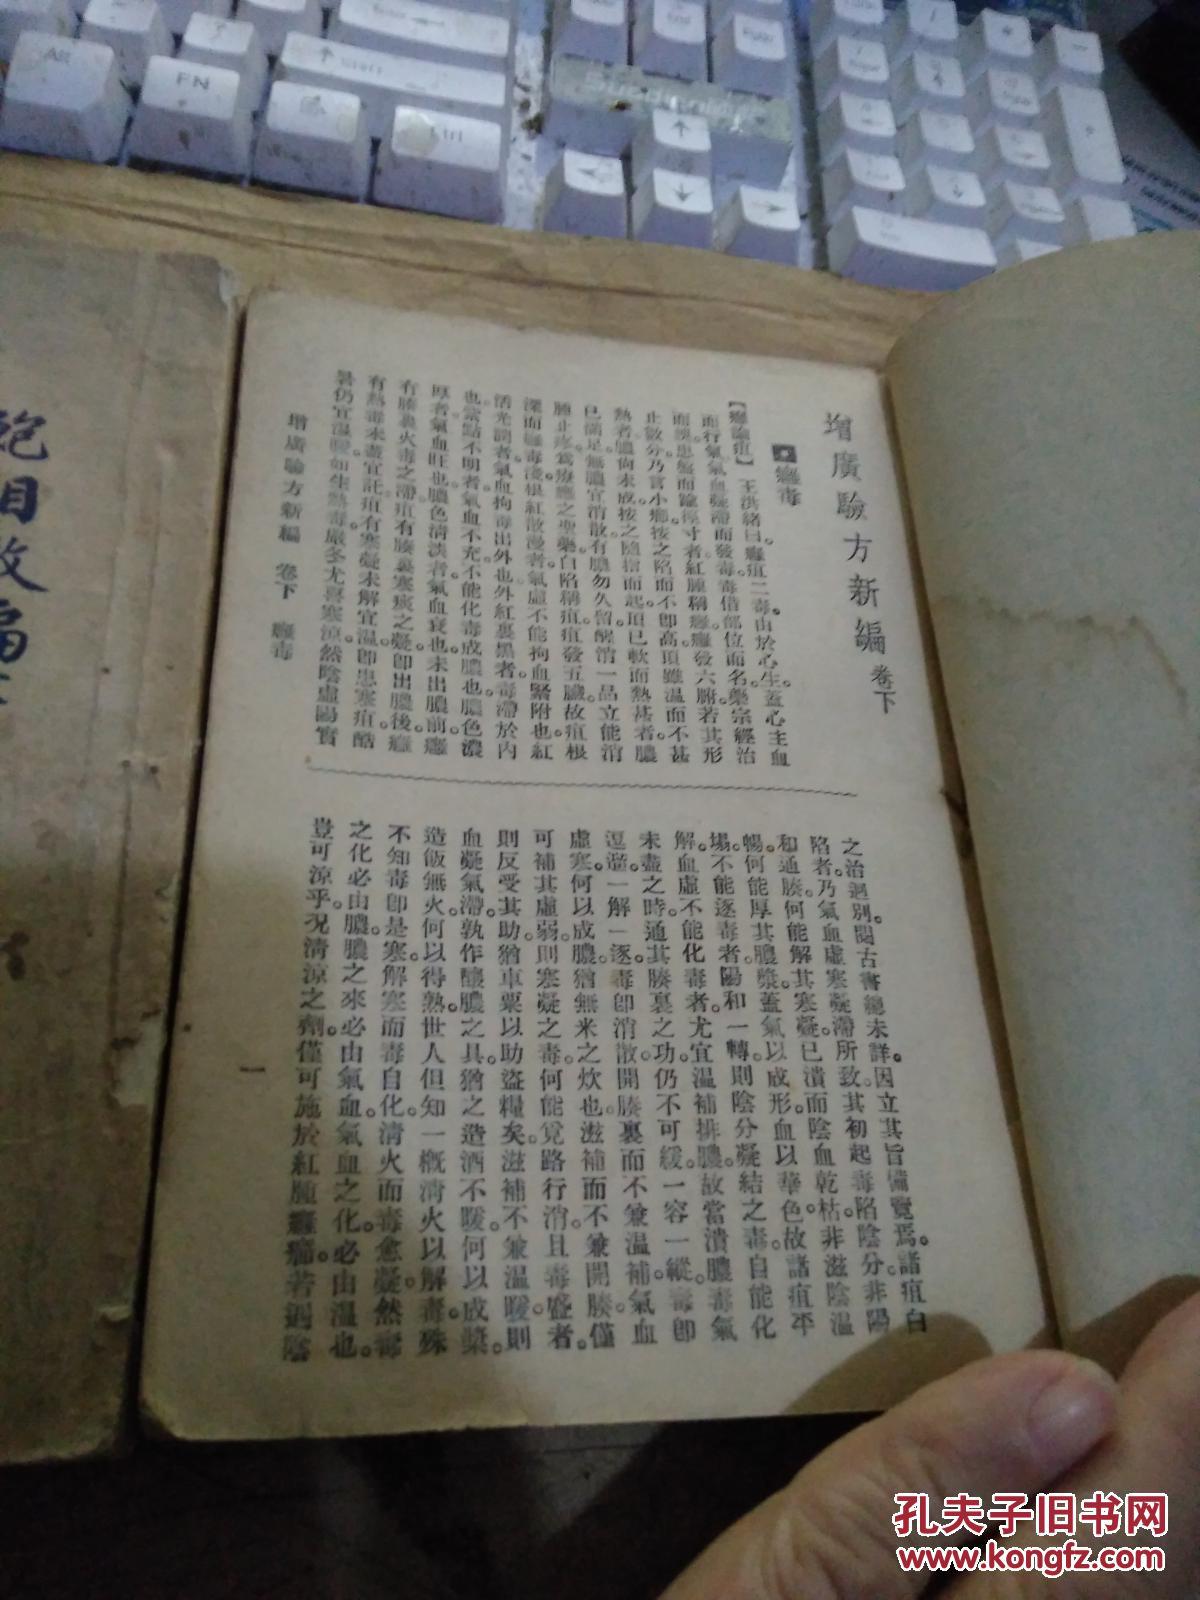 增廣驗方新編 卷下
癰毒
【癰疽論】王洪緒曰。癰疽二毒。由於心生。蓋心主血
而行氣。氣血凝滯而發毒。毒借部位而名。藥宗經治
而誤。患盤而踰徑寸者。紅腫稱癰。癰發六腑。若其形
止數分。乃言小癤。按之陷而不即高。頂雖温而不甚
熱者。膿尚未成。按之隨指而起。頂已軟而熱甚者。膿
已滿足。無膿宜消散。有膿勿久留。醒消一品。立能消
腫止疼。為療癰之聖藥。白陷稱疽。疽發五臟。故疽根
深而癰毒淺。根紅散漫者。氣虛不能拘血緊附也。紅
活光潤者。氣血拘毒出外也。外紅裏黑者。毒滯於內
也。紫點不明者。氣血不充。不能化毒成膿也。膿色濃
厚者。氣血旺也。膿色清淡者。氣血衰也。未出膿前。癰
有腠裏火毒之滯。疽有腠裏寒痰之凝。即出膿後。癰
有熱毒未盡宜託。疽有寒凝未解宜温。即患寒疽。酷
暑仍宜温暖。如生熱毒。嚴冬尤喜寒涼。然陰虛陽實
之治迥別。閱古書總未詳。因立其旨備覽焉。諸疽白
陷者。乃氣血虛寒凝滯所致。其初起毒陷陰分。非陽
和通腠。何能解其寒凝。已潰而陰血乾枯。非滋陰温
暢。何能厚其膿漿。蓋氣以成形。血以華色。故諸疽平
塌。不能逐毒者。陽和一轉。則陰分凝結之毒。自能化
解。血虛不能化毒者。尤宜温補排膿。故當潰膿毒氣
未盡之時。通其腠裏之功。仍不可緩。一容一縱。毒即
逗遛。一解一逐。毒即消散。開腠裏而不兼温補。氣血
虛寒。何以成膿。猶無米之炊也。滋補而不兼開腠。僅
可補其虛弱。則寒凝之毒。何能覓路行消。且毒盛者。
則反受其助。猶車粟以助盜糧矣。滋補不兼温暖。則
血凝氣滯。孰作釀膿之具。猶之造酒不暖。何以成漿。
造飯無火。何以得熟。世人但知一概清火以解毒。殊
不知毒即是寒。解寒而毒自化。清火而毒愈凝。然毒
之化必由膿。膿之來必由氣血。氣血之化。必由温也。
豈可涼乎。況清涼之劑。僅可施於紅腫癰癤。若遇陰
增廣驗方新編 卷下 癰毒
一
Alt
FN
Ctrl
孔夫子旧书网
www.kongfz.com